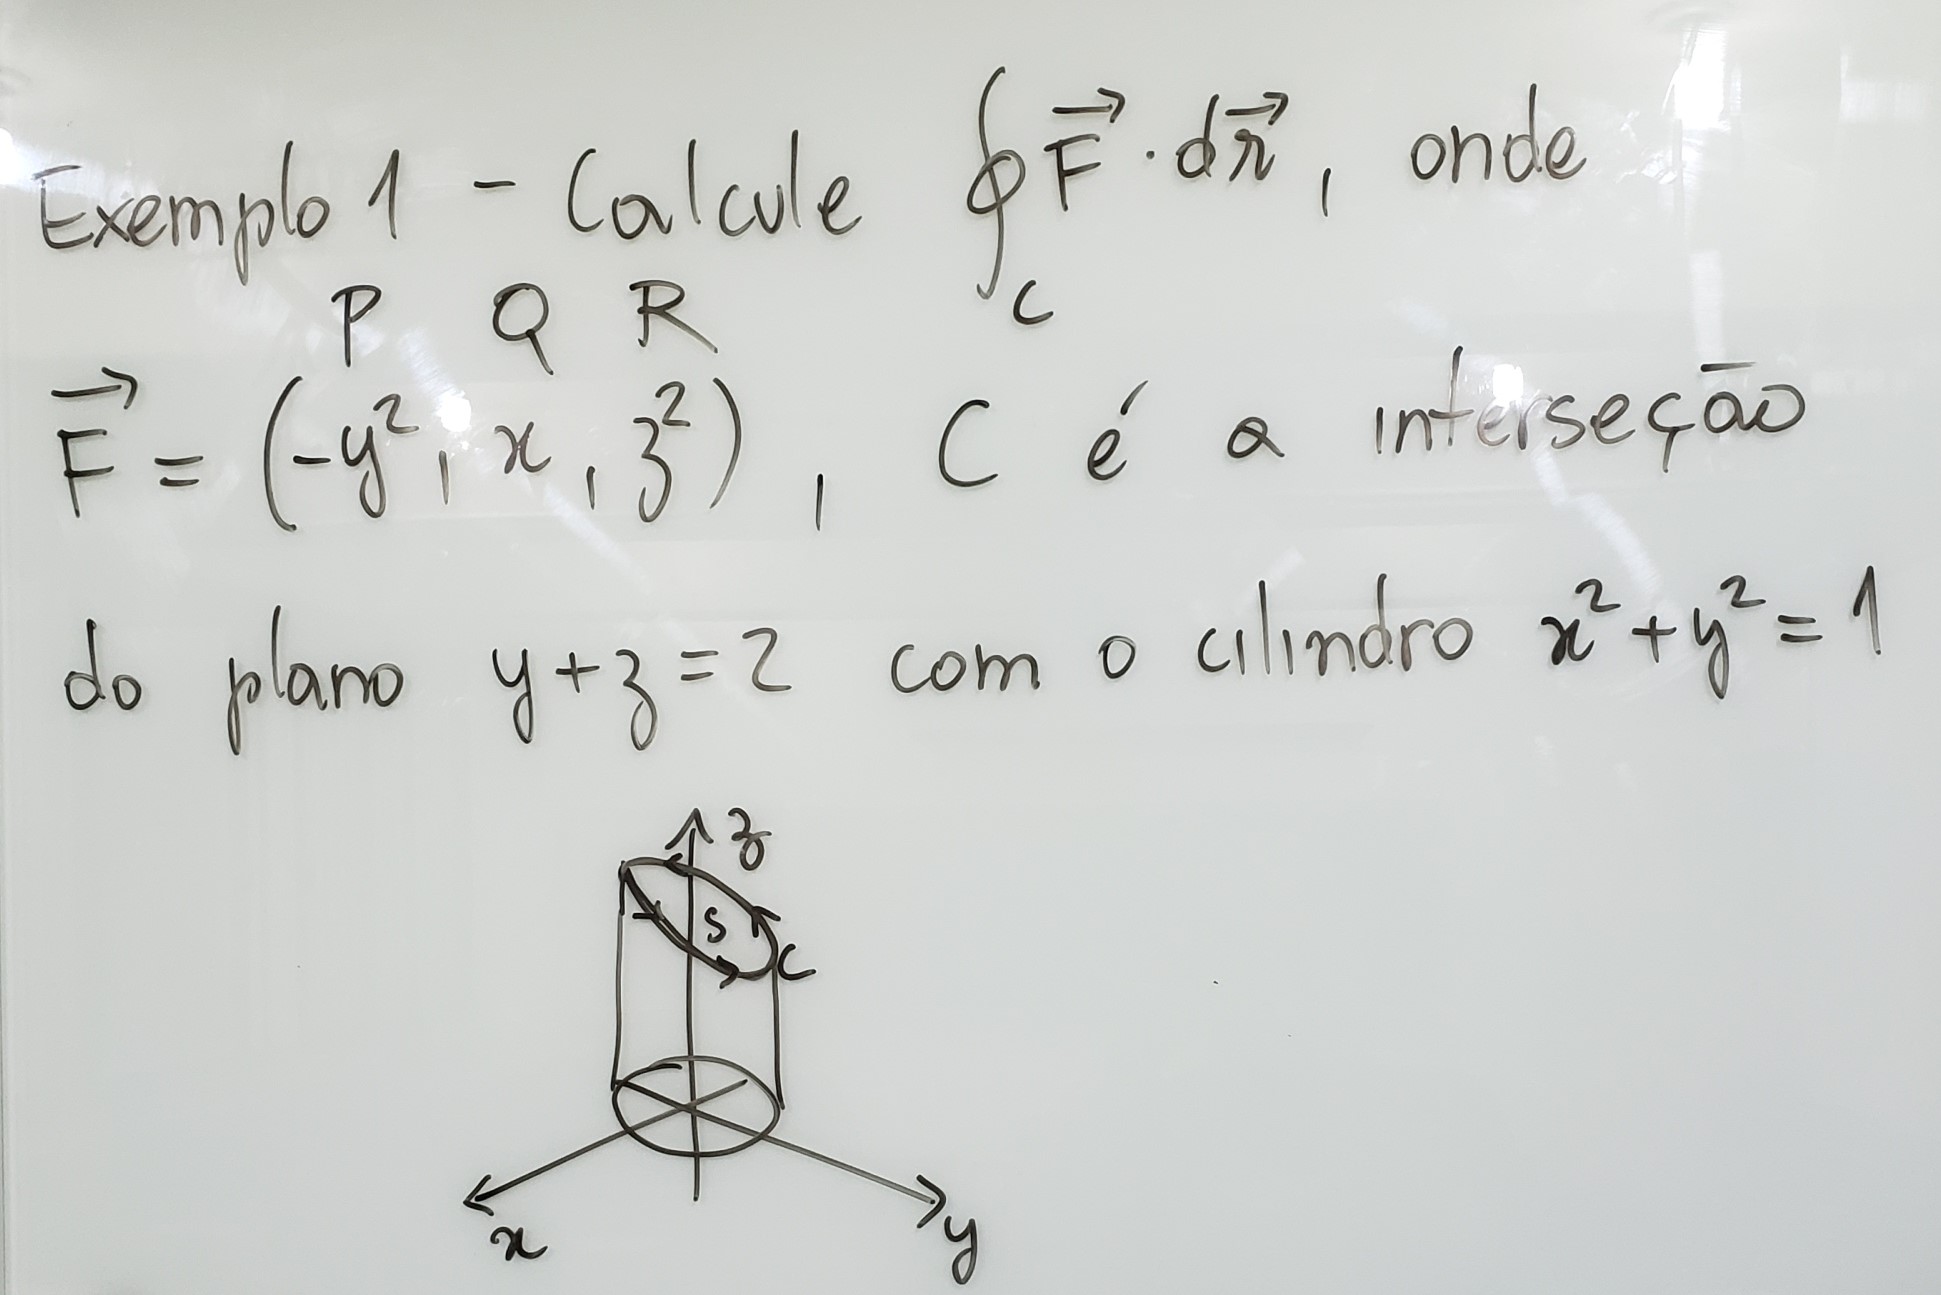 Exemplo 1 - Calcule ∮_C F⃗ · dr⃗, onde
P Q R
F⃗ = (-y², x, z²), C é a interseção
do plano y+z=2 com o cilindro x²+y²=1
z
S
C
x
y